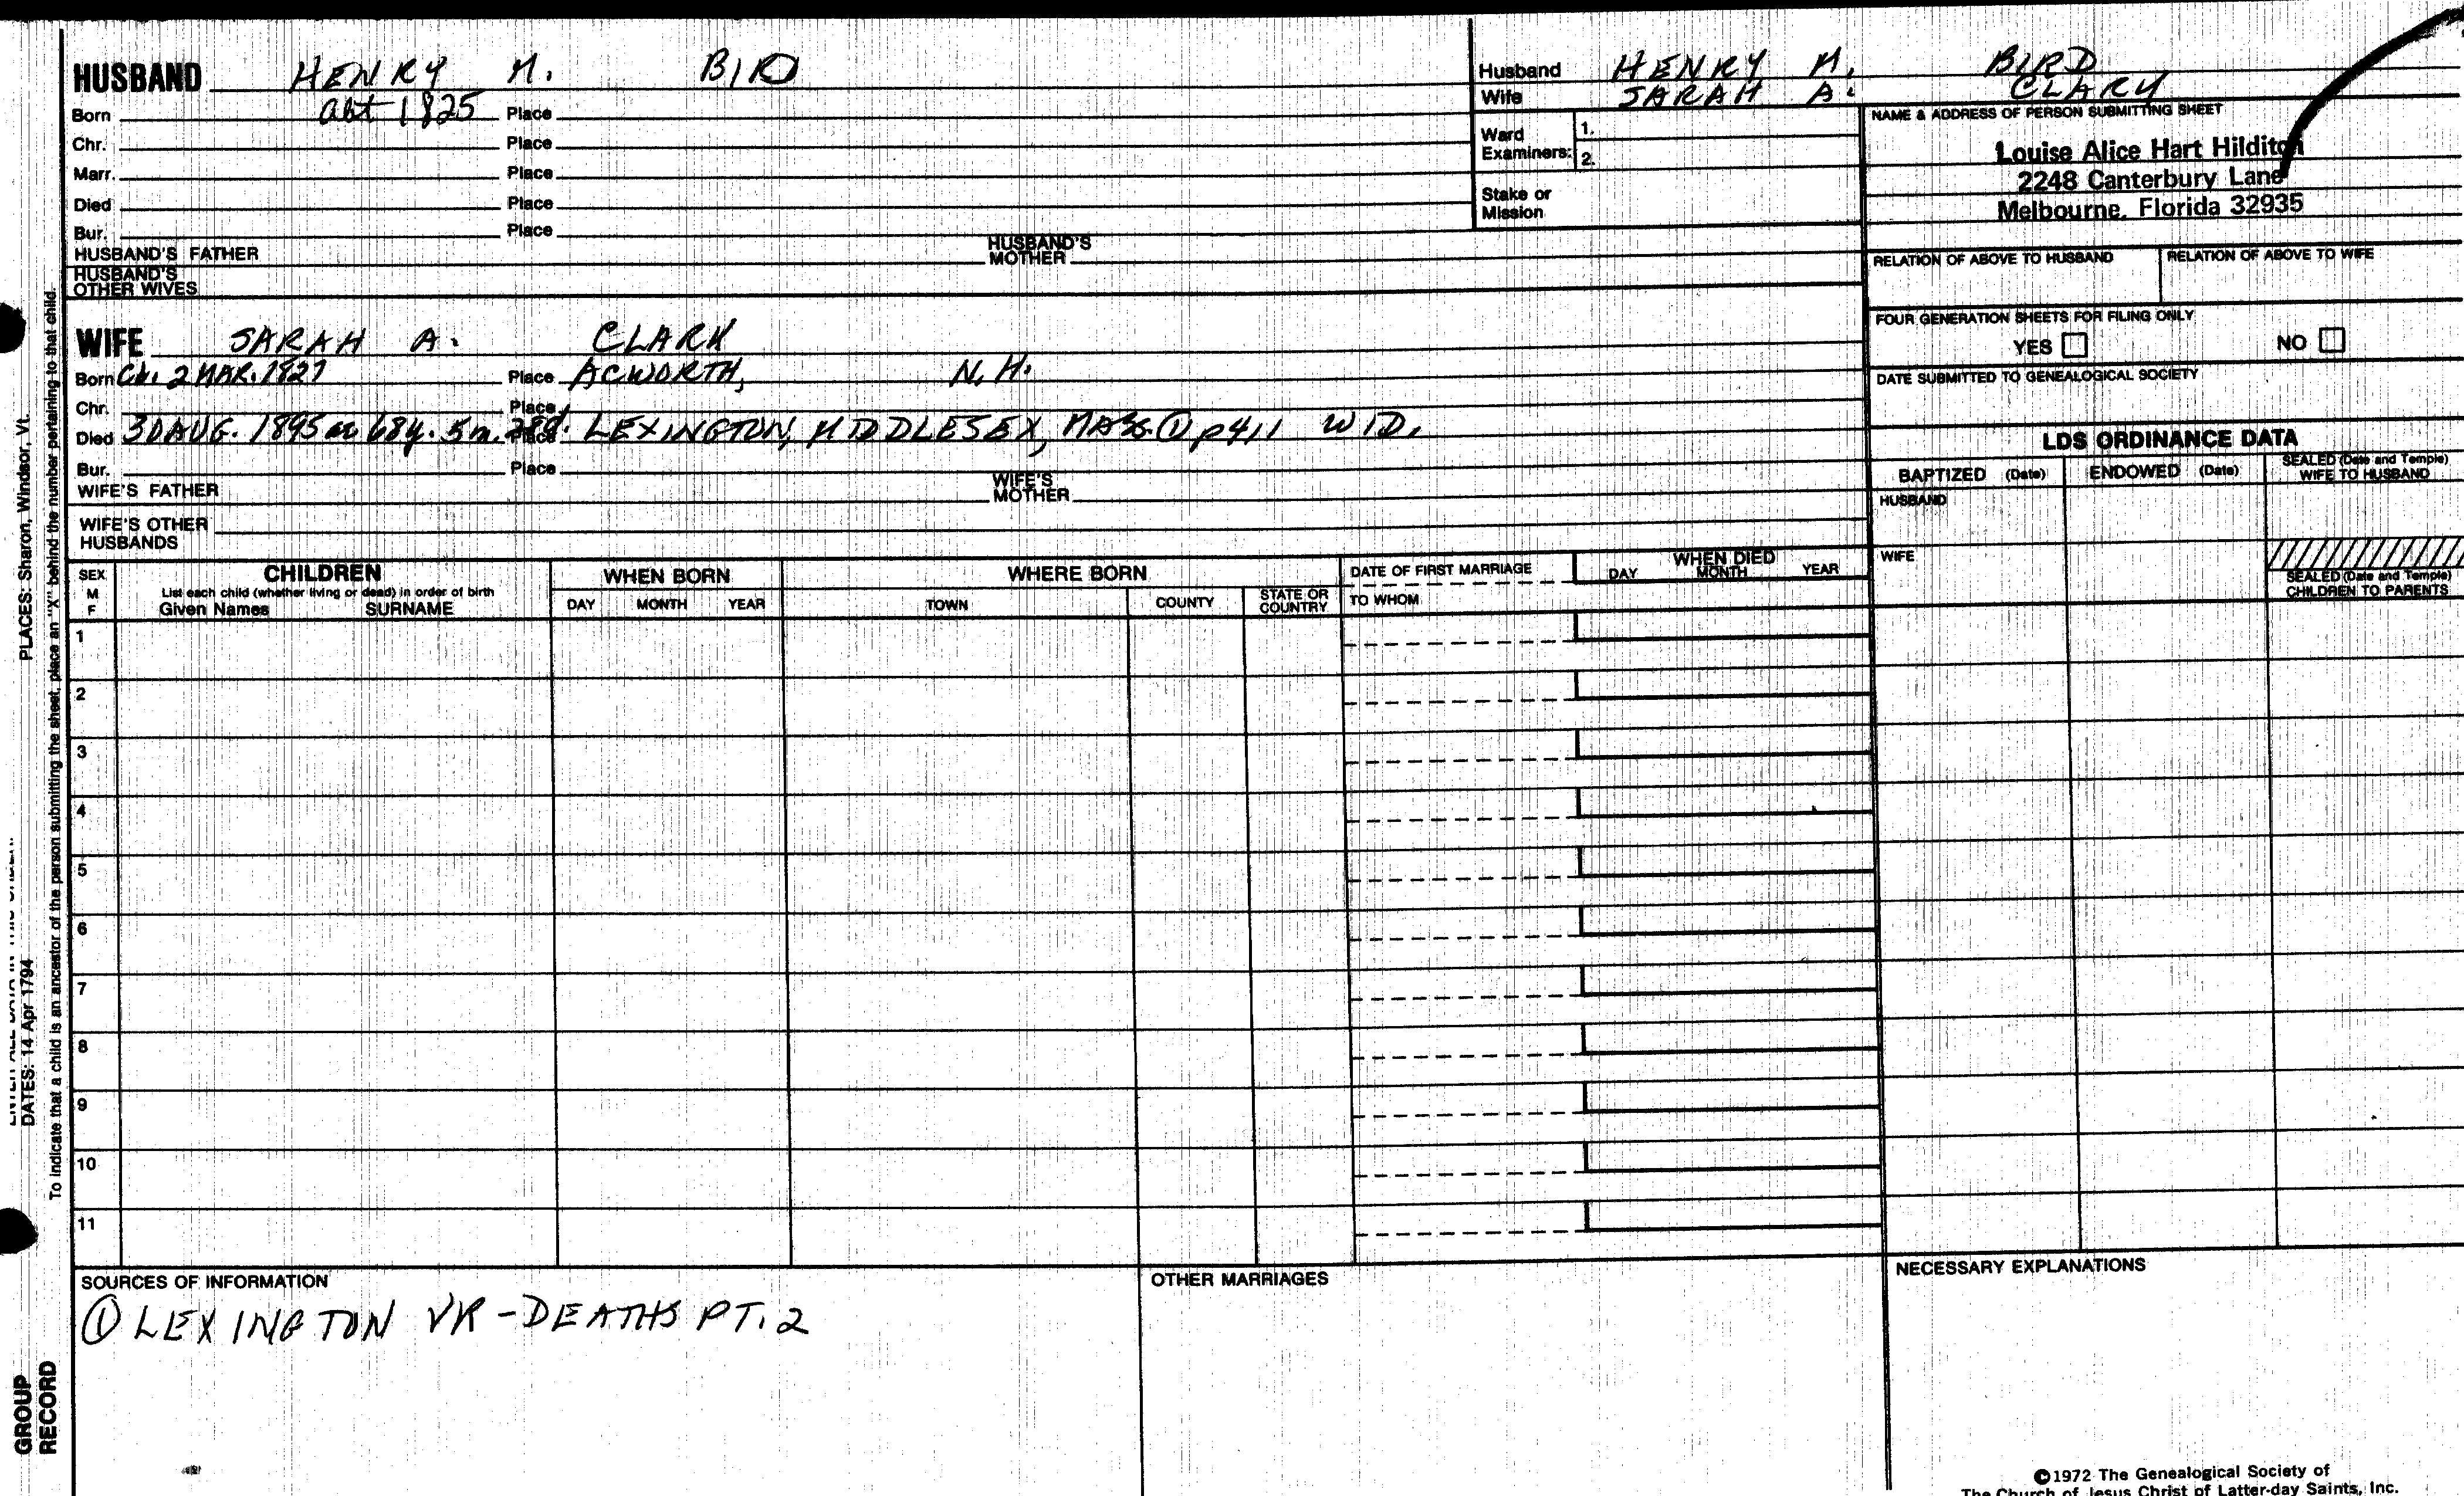 HUSBAND HENRY M. BIRD
Born abt 1825 Place
Chr. Place
Marr. Place
Died Place
Bur. Place
HUSBAND'S FATHER HUSBAND'S MOTHER
HUSBAND'S OTHER WIVES
Husband HENRY M. BIRD
Wife SARAH A. CLARK
Ward Examiners: 1.
2.
Stake or Mission
NAME & ADDRESS OF PERSON SUBMITTING SHEET
Louise Alice Hart Hilditch
2248 Canterbury Lane
Melbourne, Florida 32935
RELATION OF ABOVE TO HUSBAND RELATION OF ABOVE TO WIFE
FOUR GENERATION SHEETS FOR FILING ONLY
YES NO
DATE SUBMITTED TO GENEALOGICAL SOCIETY
WIFE SARAH A. CLARK
Born Cal. 2 MAR. 1827 Place ACWORTH, N.H.
Chr. Place
Died 30 AUG. 1895 ae 68y. 5m. 28d. Place LEXINGTON, MIDDLESEX, MASS. ① p411 WID.
Bur. Place
WIFE'S FATHER WIFE'S MOTHER
WIFE'S OTHER HUSBANDS
LDS ORDINANCE DATA
BAPTIZED (Date) ENDOWED (Date) SEALED (Date and Temple) WIFE TO HUSBAND
HUSBAND
WIFE
SEALED (Date and Temple) CHILDREN TO PARENTS
SEX M F
CHILDREN
List each child (whether living or dead) in order of birth
Given Names SURNAME
WHEN BORN
DAY MONTH YEAR
WHERE BORN
TOWN COUNTY STATE OR COUNTRY
DATE OF FIRST MARRIAGE
TO WHOM
WHEN DIED
DAY MONTH YEAR
1
2
3
4
5
6
7
8
9
10
11
SOURCES OF INFORMATION
① LEXINGTON VR - DEATHS PT. 2
OTHER MARRIAGES
NECESSARY EXPLANATIONS
©1972 The Genealogical Society of
The Church of Jesus Christ of Latter-day Saints, Inc.
PLACES: Sharon, Windsor, Vt.
DATES: 14 Apr 1794
To indicate that a child is an ancestor of the person submitting the sheet, place an "X" behind the number pertaining to that child.
GROUP
RECORD